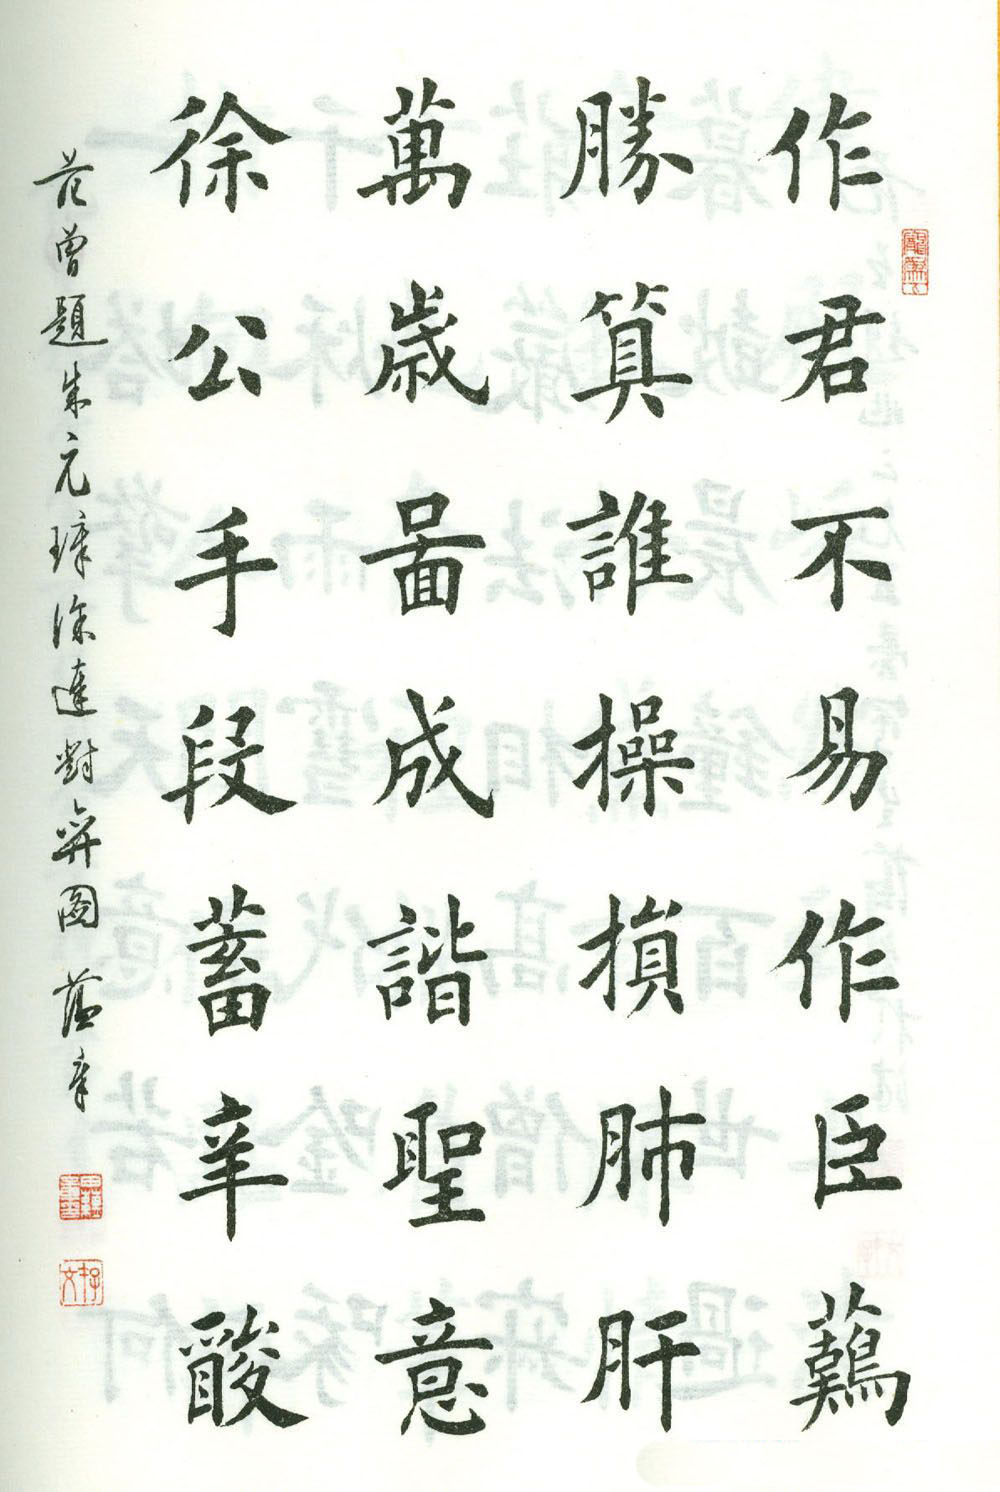 作君不易作臣難
勝算誰操損肺肝
萬歲啚成諧聖意
徐公手段蓄辛酸
范曾題朱元璋徐達對弈圖 蘊章